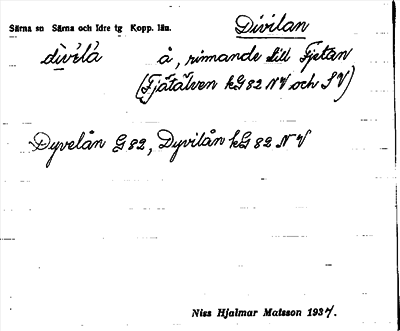 Särna sn Särna och Idre tg Kopp. län.
Divilan
dìvìlá å, rinnande till Fjetan
(Fjätälven kG 82 NV och SV)
Dyvelån G 82, Dyvilån kG 82 NV
Niss Hjalmar Matsson 1937.